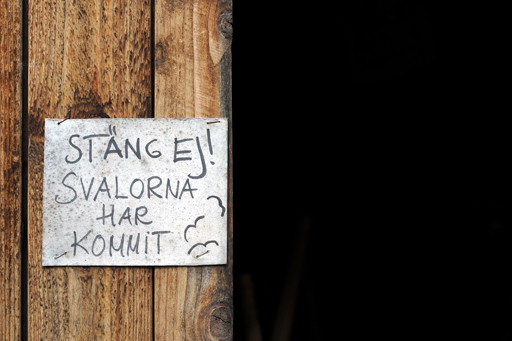 STÄNG EJ!
SVALORNA
HAR
KOMMIT